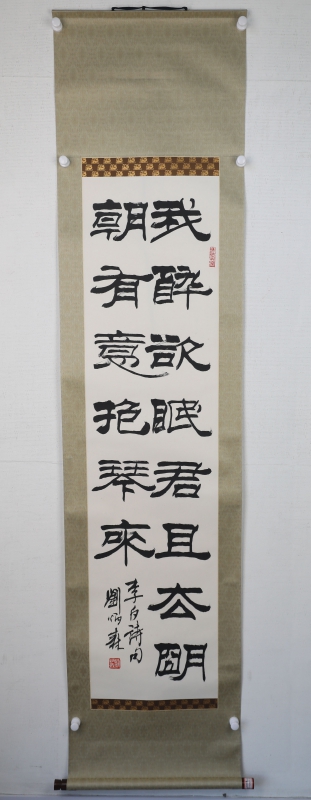 我醉欲眠君且去明
朝有意抱琴來
李白诗句
劉炳森